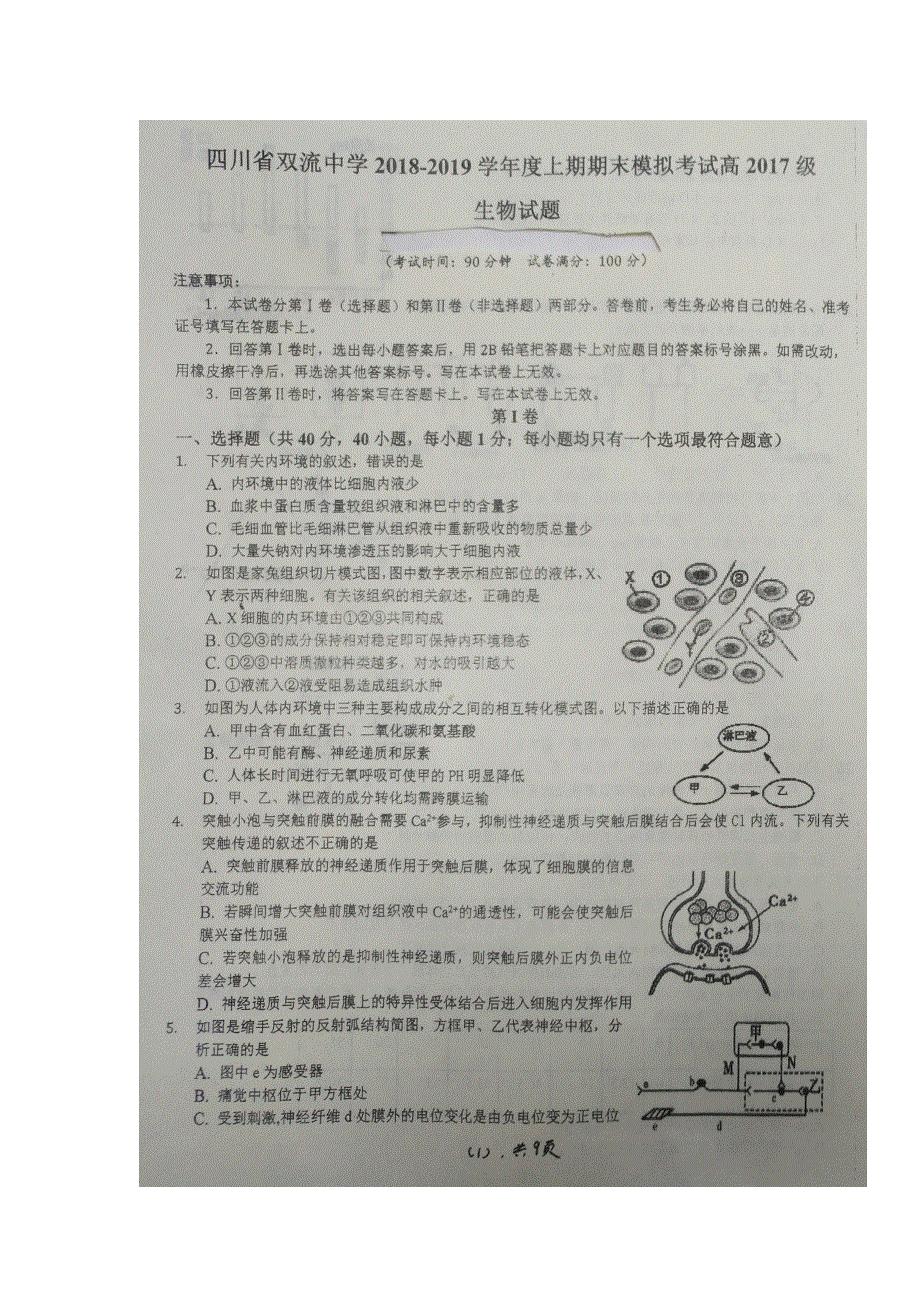 四川省双流中学 2018-2019 学年度上期期末模拟考试高 2017 级
生物试题
（考试时间：90 分钟　试卷满分：100 分）
注意事项：
1．本试卷分第Ⅰ卷（选择题）和第Ⅱ卷（非选择题）两部分。答卷前，考生务必将自己的姓名、准考
证号填写在答题卡上。
2．回答第Ⅰ卷时，选出每小题答案后，用 2B 铅笔把答题卡上对应题目的答案标号涂黑。如需改动，
用橡皮擦干净后，再选涂其他答案标号。写在本试卷上无效。
3．回答第Ⅱ卷时，将答案写在答题卡上。写在本试卷上无效。
第 I 卷
一、选择题（共 40 分，40 小题，每小题 1 分；每小题均只有一个选项最符合题意）
1. 下列有关内环境的叙述，错误的是
A. 内环境中的液体比细胞内液少
B. 血浆中蛋白质含量较组织液和淋巴中的含量多
C. 毛细血管比毛细淋巴管从组织液中重新吸收的物质总量少
D. 大量失钠对内环境渗透压的影响大于细胞内液
2. 如图是家兔组织切片模式图,图中数字表示相应部位的液体,X、
Y 表示两种细胞。有关该组织的相关叙述，正确的是
A. X 细胞的内环境由①②③共同构成
B. ①②③的成分保持相对稳定即可保持内环境稳态
C. ①②③中溶质微粒种类越多，对水的吸引越大
D. ①液流入②液受阻易造成组织水肿
X ① ③ ④ ② Y
3. 如图为人体内环境中三种主要构成成分之间的相互转化模式图。以下描述正确的是
A. 甲中含有血红蛋白、二氧化碳和氨基酸
B. 乙中可能有酶、神经递质和尿素
C. 人体长时间进行无氧呼吸可使甲的 PH 明显降低
D. 甲、乙、淋巴液的成分转化均需跨膜运输
淋巴液
甲 乙
4. 突触小泡与突触前膜的融合需要 Ca²⁺参与，抑制性神经递质与突触后膜结合后会使 Cl 内流。下列有关
突触传递的叙述不正确的是
A. 突触前膜释放的神经递质作用于突触后膜，体现了细胞膜的信息
交流功能
B. 若瞬间增大突触前膜对组织液中 Ca²⁺的通透性，可能会使突触后
膜兴奋性加强
C. 若突触小泡释放的是抑制性神经递质，则突触后膜外正内负电位
差会增大
D. 神经递质与突触后膜上的特异性受体结合后进入细胞内发挥作用
Ca²⁺
Ca²⁺
5. 如图是缩手反射的反射弧结构简图，方框甲、乙代表神经中枢，分
析正确的是
A. 图中 e 为感受器
B. 痛觉中枢位于甲方框处
C. 受到刺激,神经纤维 d 处膜外的电位变化是由负电位变为正电位
甲
M N
a b c 乙
e d
(1)．共9页